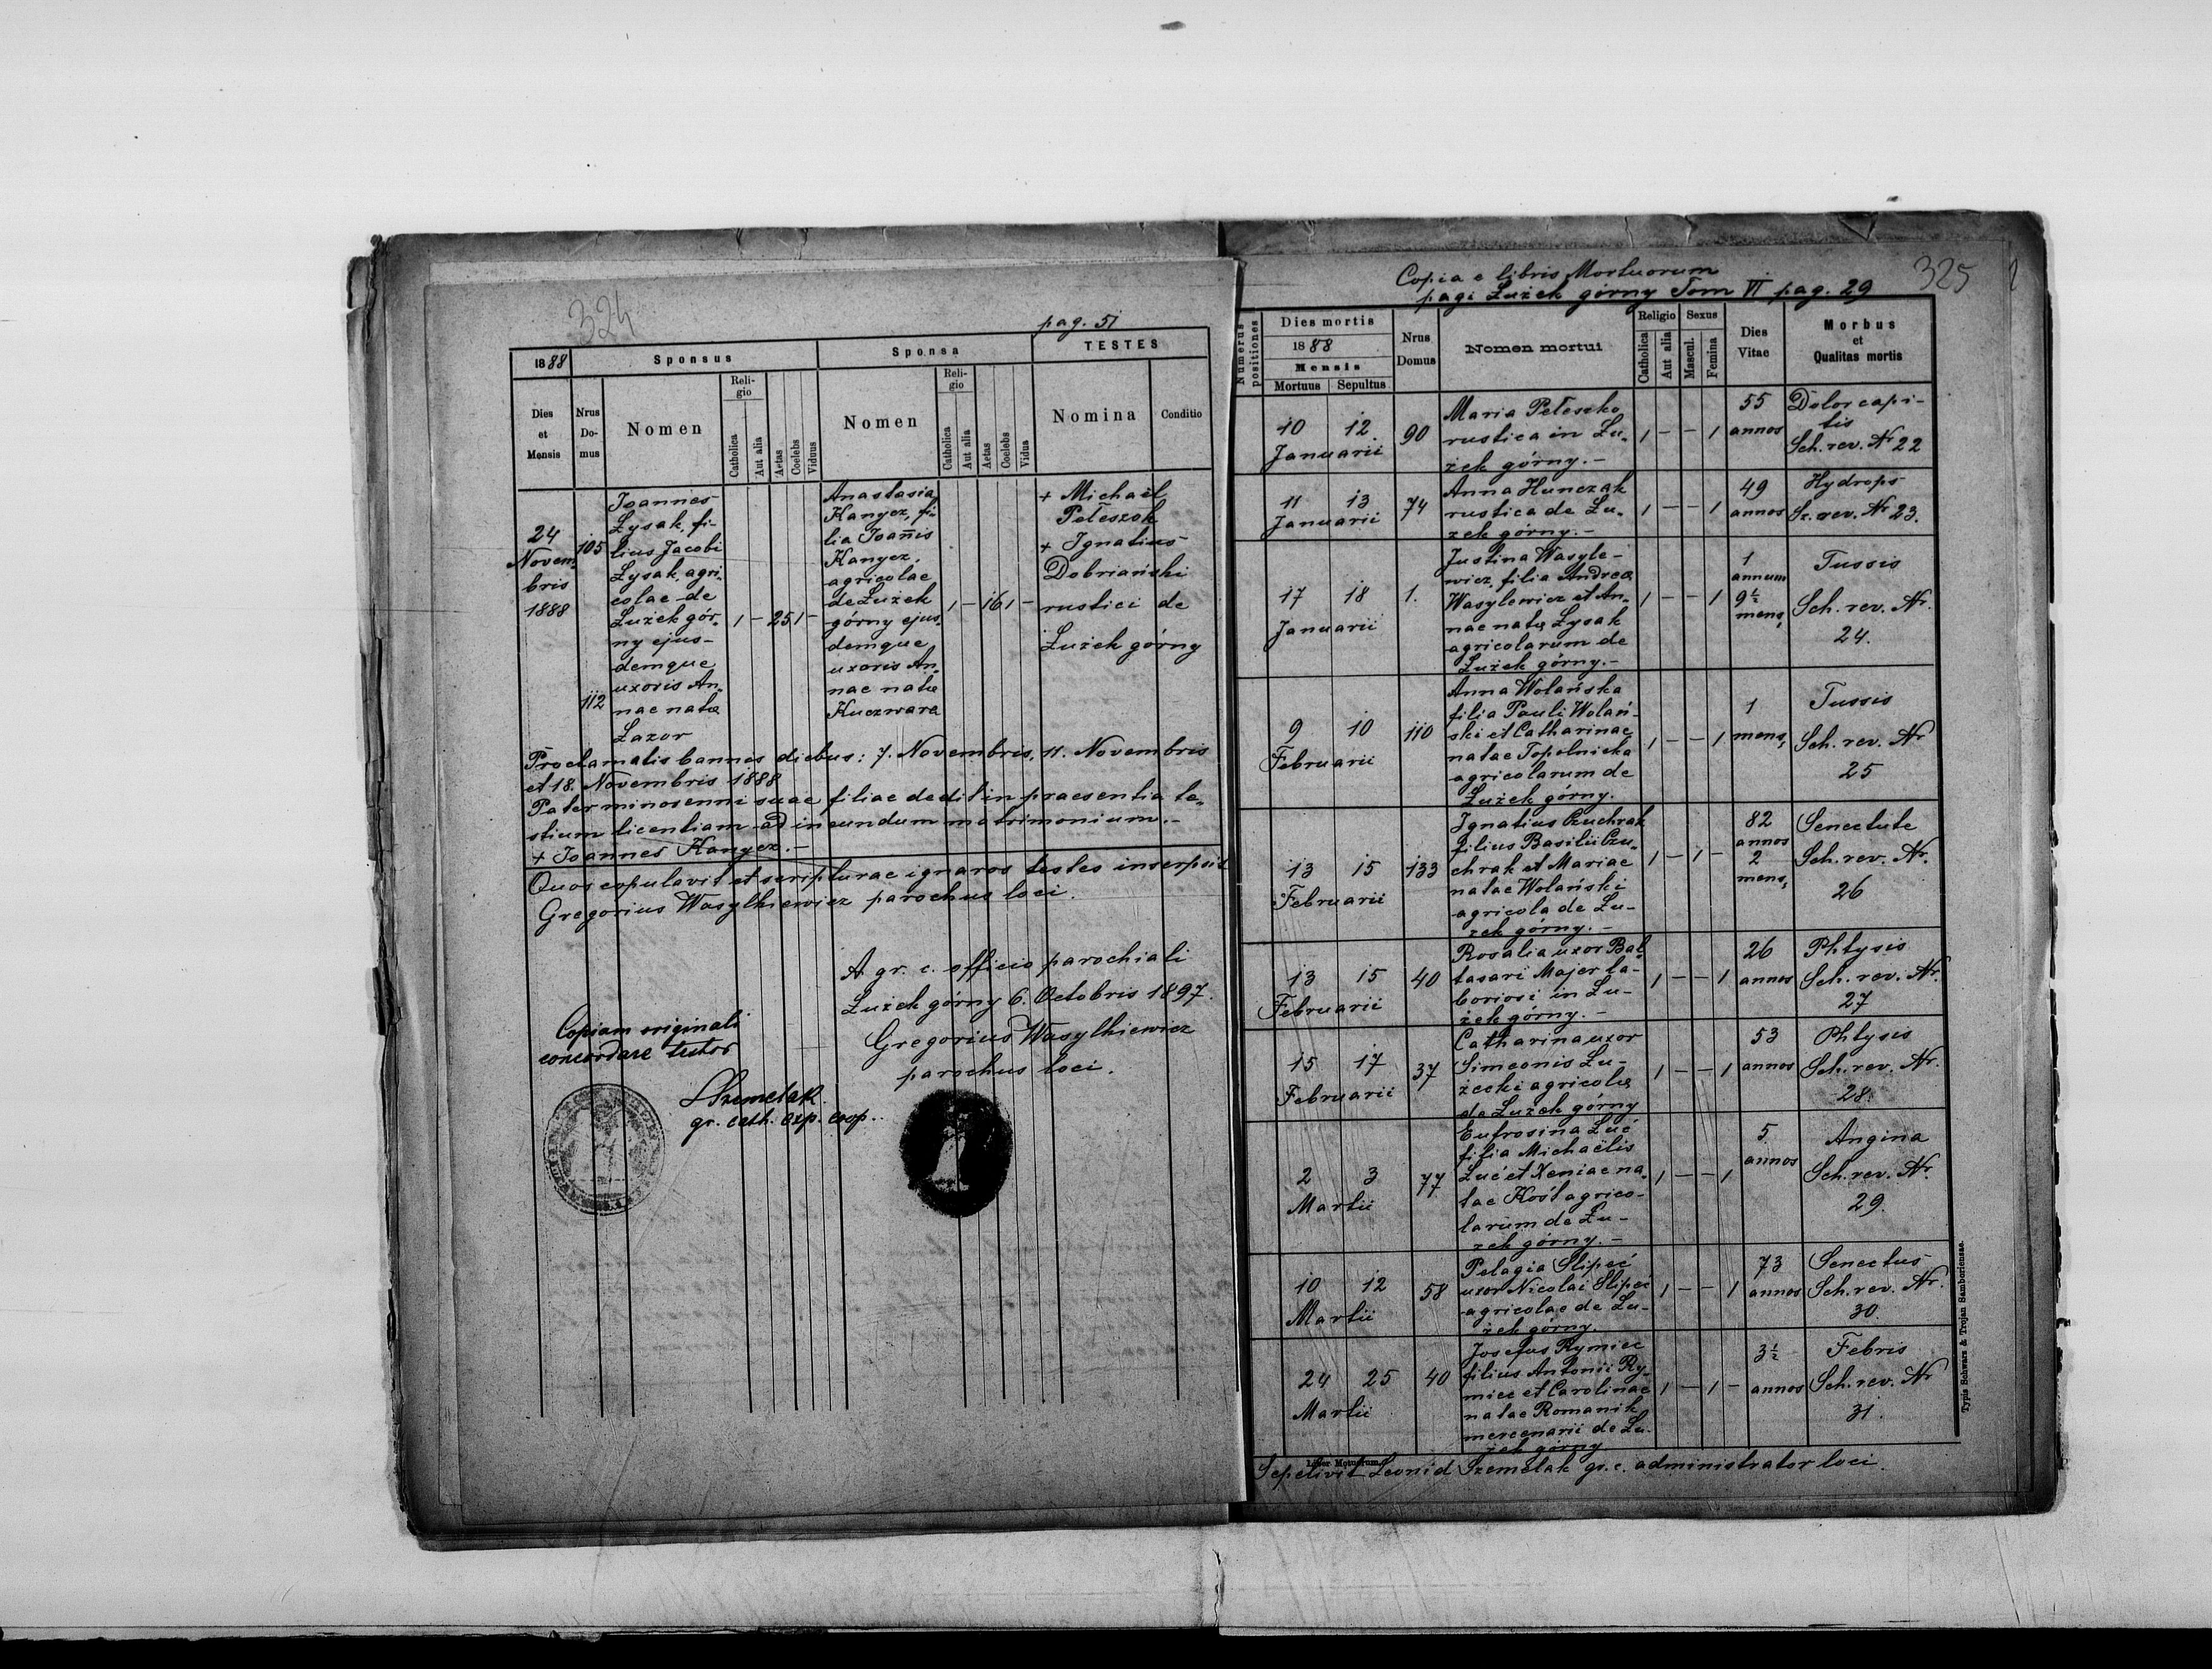 324
pag. 51
1888
Sponsus
Sponsa
TESTES
Dies et Mensis
Nrus Domus
Nomen
Religio
Catholica
Aut alia
Aetas
Coelebs
Viduus
Nomen
Religio
Catholica
Aut alia
Aetas
Coelebs
Vidua
Nomina
Conditio
24
Novem-
bris
1888
105
112
Joannes
Łysak, fi-
lius Jacobi
Łysak, agri-
colae de
Łużek gór-
ny ejus-
demque
uxoris An-
nae natæ
Łazor
1 - 25 1 -
Anastasia
Kanycz, fi-
lia Joannis
Kanycz,
agricolae
de Łużek
górny ejus-
demque
uxoris An-
nae natæ
Kuczwara
1 - 16 1 -
+ Michaël
Pełeszok
+ Ignatius
Dobriański
rustici de
Łużek górny
Proclamatis bannis diebus: 7. Novembris, 11. Novembris
et 18. Novembris 1888
Pater minorenni suae filiae dedit in praesentia te-
stium licentiam ad ineundum matrimonium.-
+ Joannes Kanycz.-
Quos copulavit et scripturae ignaros testes inscripsit
Gregorius Wasylkiewicz parochus loci.
A gr. c. officio parochiali
Łużek górny 6. Octobris 1897.
Gregorius Wasylkiewicz
parochus loci.
Copiam originali
concordare testor
LSzemelak
gr. cath. exp. coop.
325
Copia e libris Mortuorum
pagi Łużek górny Tom VI pag. 29
Numerus positiones
Dies mortis
1888
Mensis
Mortuus
Sepultus
Nrus Domus
Nomen mortui
Religio
Catholica
Aut alia
Sexus
Mascul.
Femina
Dies Vitae
Morbus
et
Qualitas mortis
10 12
Januarii
90
Maria Pełeszko
rustica in Łu-
żek górny.-
1 - - 1
55
annos
Dolor capi-
tis
Sch. rev. Nr 22
11 13
Januarii
74
Anna Hunczak
rustica de Łu-
żek górny.-
1 - - 1
49
annos
Hydrops
Sz. rev. Nr 23.
17 18
Januarii
1.
Justina Wasyle-
wicz, filia Andreæ
Wasylewicz et An-
nae natæ Łysak
agricolarum de
Łużek górny.-
1 - - 1
1
annum
9½
mens,
Tussis
Sch. rev. Nr.
24.
9 10
Februarii
110
Anna Wolańska
filia Pauli Wolań-
ski et Catharinae
natae Topolnicka
agricolarum de
Łużek górny.
1 - - 1
1
mens,
Tussis
Sch. rev. Nr
25
13 15
Februarii
133
Ignatius Czuchrak
filius Basilii Czu-
chrak et Mariae
natae Wolański
agricola de Łu-
żek górny.-
1 - 1 -
82
annos
2
mens,
Senectute
Sch. rev. Nr.
26
13 15
Februarii
40
Rosalia uxor Bal-
tasari Majer la-
boriosi in Łu-
żek górny.-
1 - - 1
26
annos
Phtysis
Sch. rev. Nr.
27
15 17
Februarii
37
Catharina uxor
Simeonis Łu-
żecki agricolæ
de Łużek górny
1 - - 1
53
annos
Phtysis
Sch. rev. Nr.
28.
2 3
Martii
77
Eufrosina Łuć
filia Michaëlis
Łuć et Xeniae na-
tae Kośt agrico-
larum de Łu-
żek górny.-
1 - - 1
5.
annos
Angina
Sch. rev. Nr.
29.
10 12
Martii
58
Pelagia Slipeć
uxor Nicolai Slipec
agricolae de Łu-
żek górny.
1 - - 1
73
annos
Senectus
Sch. rev. Nr.
30.
24 25
Martii
40
Josefus Rymiec
filius Antonii Ry-
miec et Carolinae
natae Romanik
mercenarii de Łu-
żek górny
1 - 1 -
3½
annos
Febris
Sch. rev. Nr
31.
Liber Motuorum.
Sepelivit Leonid Szemelak gr. c. administrator loci.
Typis Schwarz & Trojan Samboriensae.